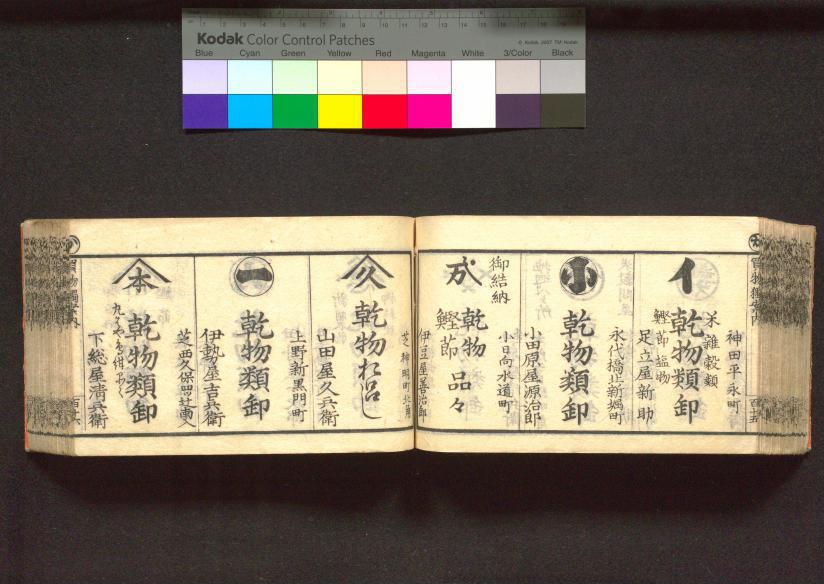 Kodak Color Control Patches
© Kodak, 2007 TM: Kodak
Blue Cyan Green Yellow Red Magenta White 3/Color Black
百十五
神田平永町
イ
米雑穀類
乾物類卸
鰹節塩物
足立屋新助
永代橋北新堀町
小
乾物類卸
小田原屋源治郎
小日向水道町
御結納
成
乾物
鰹節
品々
伊豆屋善治郎
芝神明町
久
乾物おろし
山田屋久兵衛
上野新黒門町
一
乾物類卸
伊勢屋吉兵衛
芝西久保
本
乾物類卸
下総屋清兵衛
買物獨案内